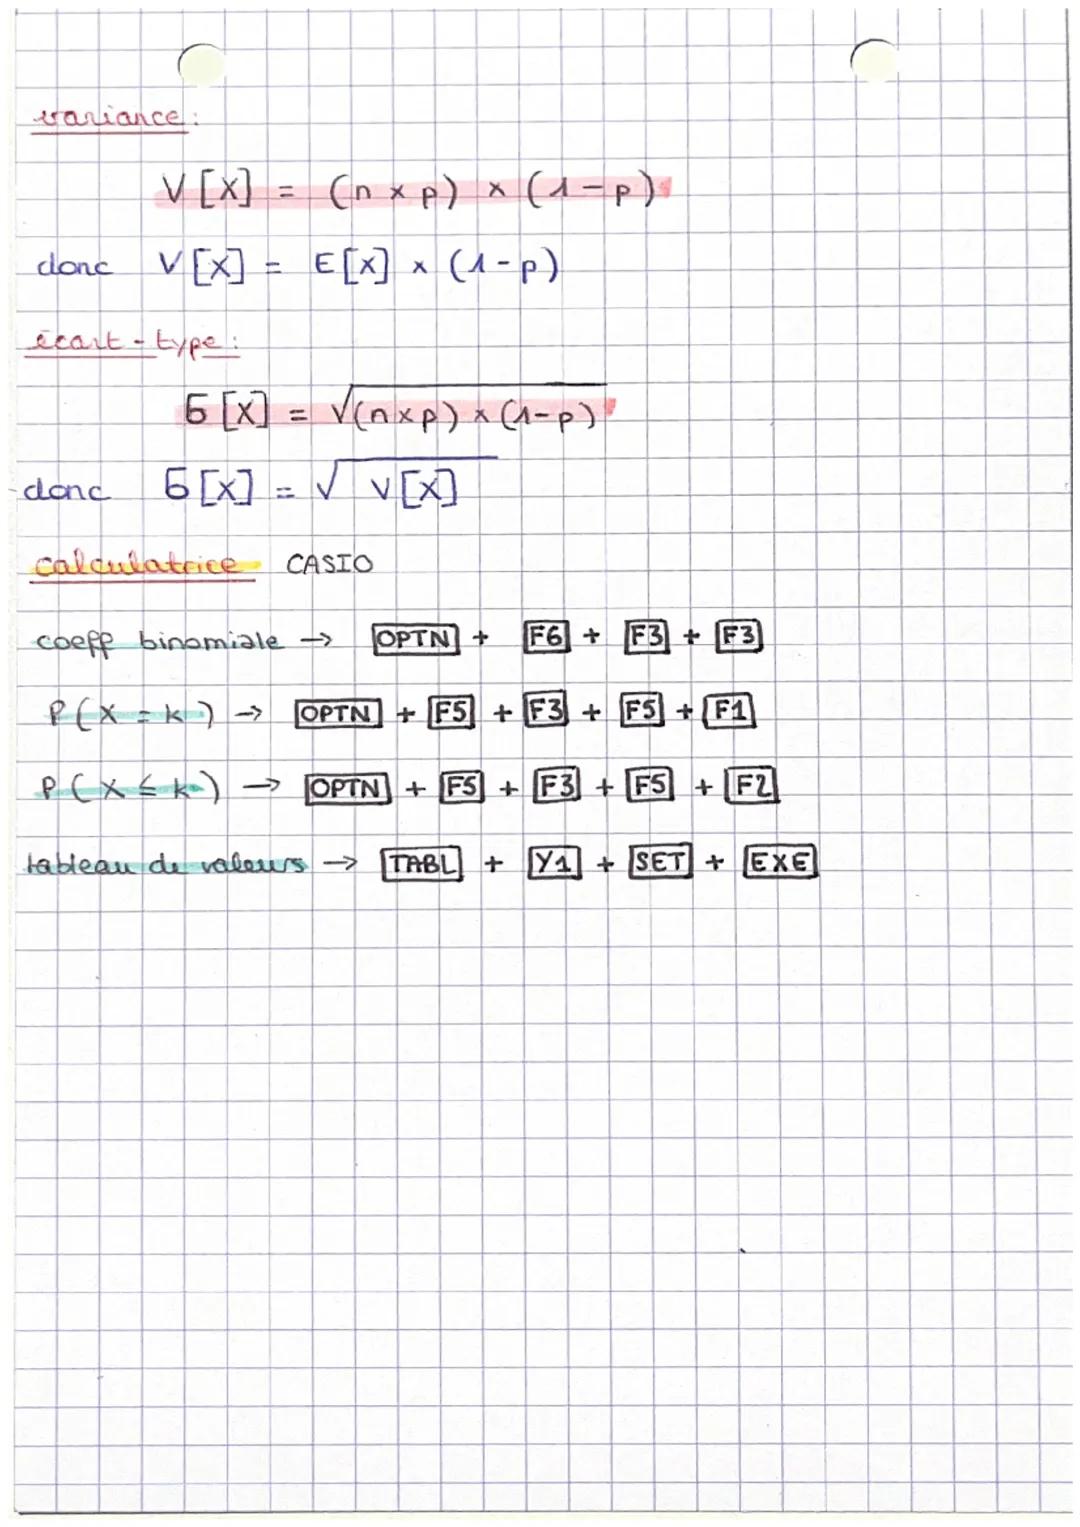 variance :
V [X] = (n × p) × (1 - p)
donc V [X] = E [X] × (1 - p)
écart - type :
б [X] = √(n × p) × (1 - p)
donc б [X] = √ V [X]
calculatrice CASIO
coeff binomiale → OPTN + F6 + F3 + F3
P ( X = k ) → OPTN + F5 + F3 + F5 + F1
P ( X ≤ k ) → OPTN + F5 + F3 + F5 + F2
tableau de valeurs → TABL + Y1 + SET + EXE